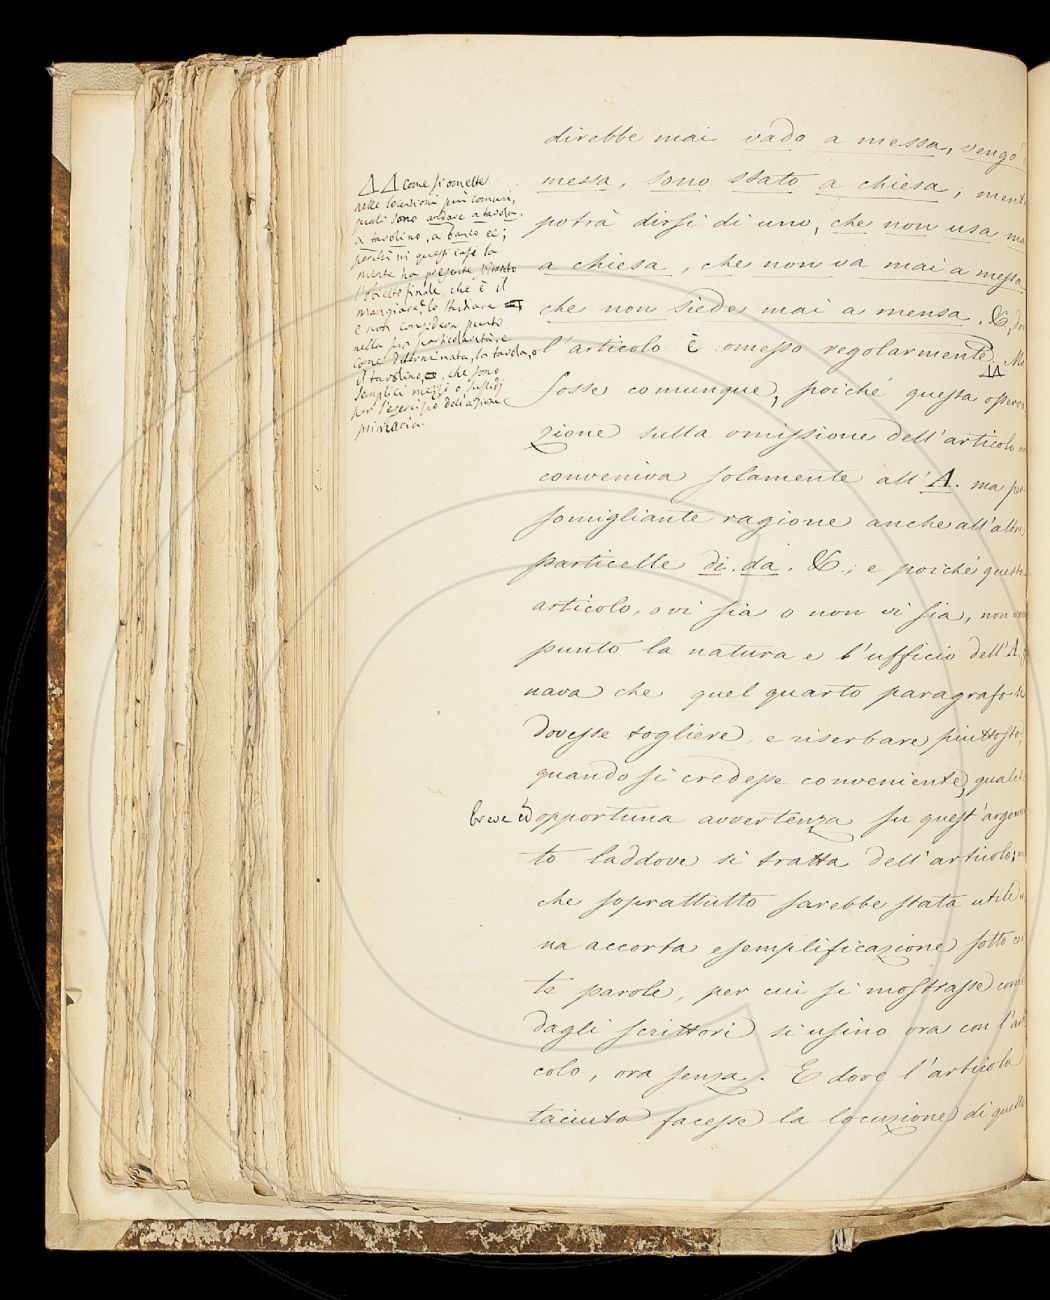 direbbe mai vado a messa, vengo
messa, sono stato a chiesa;
potrà dirsi di uno, che non usa
a chiesa, che non va mai a messa
che non siede mai a mensa. &.
l'articolo è omesso regolarmente
fosse comunque, poiché questa
zione sulla omissione dell'articolo
conveniva solamente all'A. ma
somigliante ragione anche all'altre
particelle di. da. &.; e poiché questo
articolo, o vi sia o non vi sia, non
punto la natura e l'ufficio dell'A.
nava che quel quarto paragrafo si
dovesse togliere, e riserbare piuttosto,
quando si credesse conveniente, qualche
breve ed opportuna avvertenza su quest'argomen
to laddove si tratta dell'articolo;
che soprattutto sarebbe stata utile
na accorta esemplificazione sotto
te parole, per cui si mostrasse come
dagli scrittori si usino ora con l'arti
colo, ora senza. E dove l'articolo
taciuto facesse la locuzione di
ΔΔ come si omette
nelle locuzioni più comuni,
quali sono andare a tavola,
a tavolino, a banco ec;
perché in questi casi la
mente ha presente soltanto
l'obietto finale, che è il
mangiare, lo studiare
e non considera punto
nella sua particolarità, e
come determinata, la tavola, o
il tavolino, che sono
semplici mezzi o sussidj
per l'esercizio dell'azione
primaria.